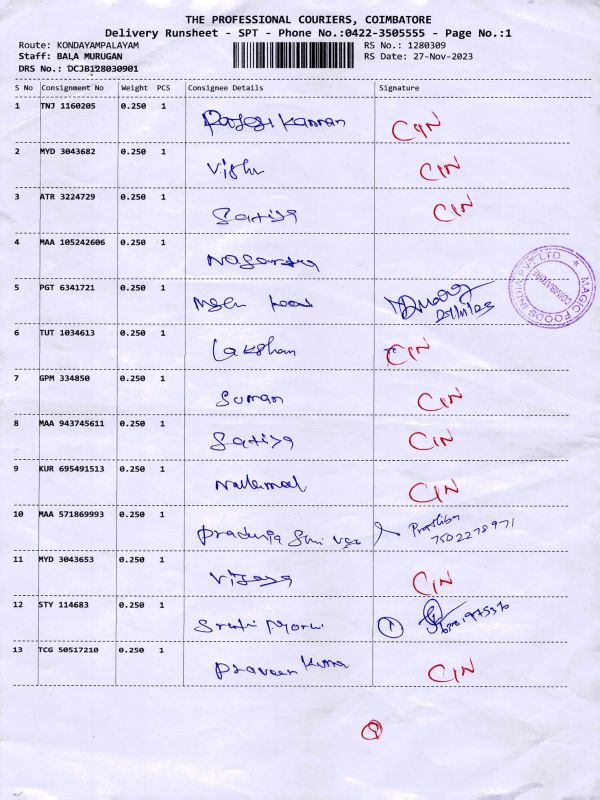 THE PROFESSIONAL COURIERS, COIMBATORE
Delivery Runsheet - SPT - Phone No.:0422-3505555 - Page No.:1
Route: KONDAYAMPALAYAM RS No.: 1280309
Staff: BALA MURUGAN RS Date: 27-Nov-2023
DRS No.: DCJB128030901
S No Consignment No Weight PCS Consignee Details Signature
1 TNJ 1160205 0.250 1 Kannan CIN
2 MYD 3043682 0.250 1 CIN
3 ATR 3224729 0.250 1 Satiya CIN
4 MAA 105242606 0.250 1
5 PGT 6341721 0.250 1
MAGIC FOODS INDIA PVT LTD
COIMBATORE
6 TUT 1034613 0.250 1 Lakshan CIN
7 GPM 334850 0.250 1 Suman CIN
8 MAA 943745611 0.250 1 Satiya CIN
9 KUR 695491513 0.250 1 CIN
10 MAA 571869993 0.250 1 7502278971
11 MYD 3043653 0.250 1 Vijaya CIN
12 STY 114683 0.250 1
13 TCG 50517210 0.250 1 Praveen Kumar CIN